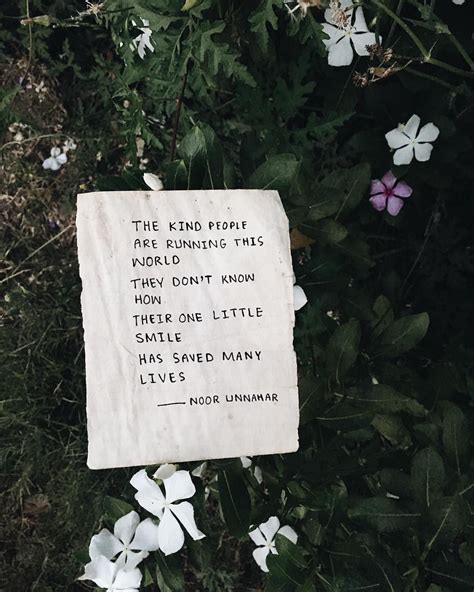 THE KIND PEOPLE
ARE RUNNING THIS
WORLD
THEY DON'T KNOW
HOW
THEIR ONE LITTLE
SMILE
HAS SAVED MANY
LIVES
— NOOR UNNAHAR